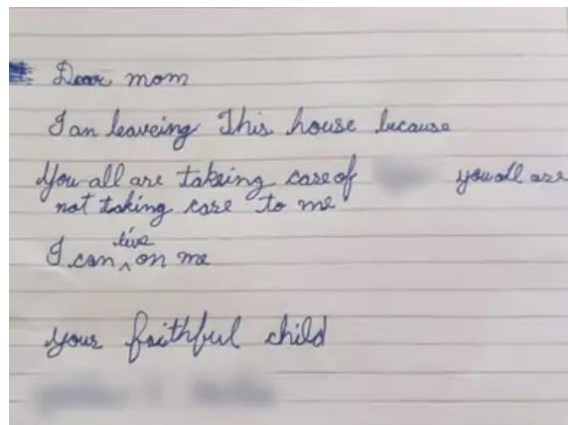 Dear mom
I an leaveing This house because
You all are takeing care of you all are
not taking care to me
I can live on me
your faithful child